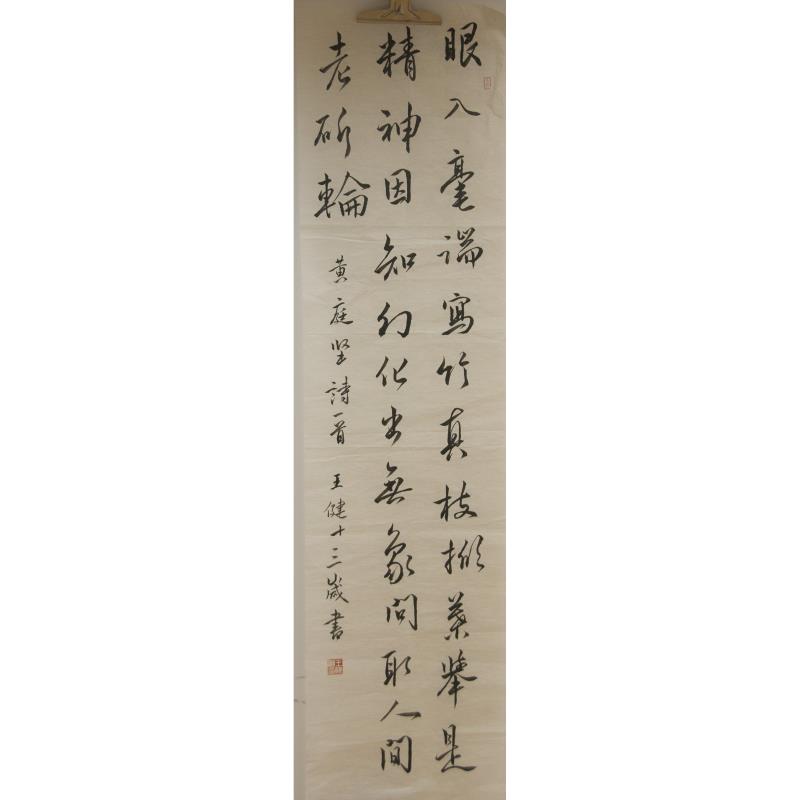 眼入毫端寫竹真枝掀葉舉是
精神因知幻化出無象問取人間
老斫輪
黄庭坚詩一首 王健十三歲書